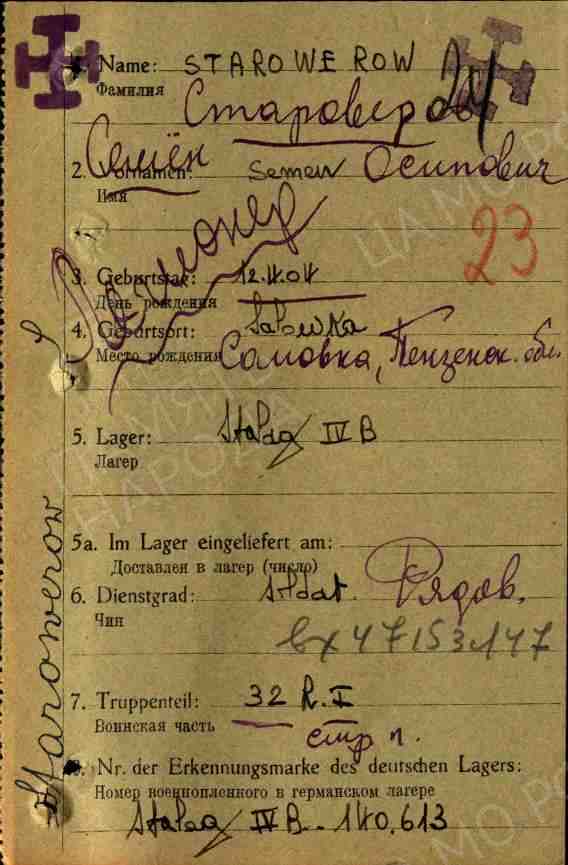 1. Name: STAROWEROW 24
Фамилия Староверов
Семён
2. Vornamen: Semen Осипович
Имя
23
3. Geburtstag: 12.4.04
День рождения
4. Geburtsort:
Место рождения Саловка, Пензенск. обл.
5. Lager: Stalag IV B
Лагер
5a. Im Lager eingeliefert am:
Доставлен в лагер (число)
6. Dienstgrad: Soldat. Рядов.
Чин
вх 47153-147
7. Truppenteil: 32 R. I
Воинская часть стр п.
8. Nr. der Erkennungsmarke des deutschen Lagers:
Номер военнопленного в германском лагере
Stalag IV B - 140.613
Starowerow
ЦА МО РФ
ПАМЯТЬ
НАРОДА